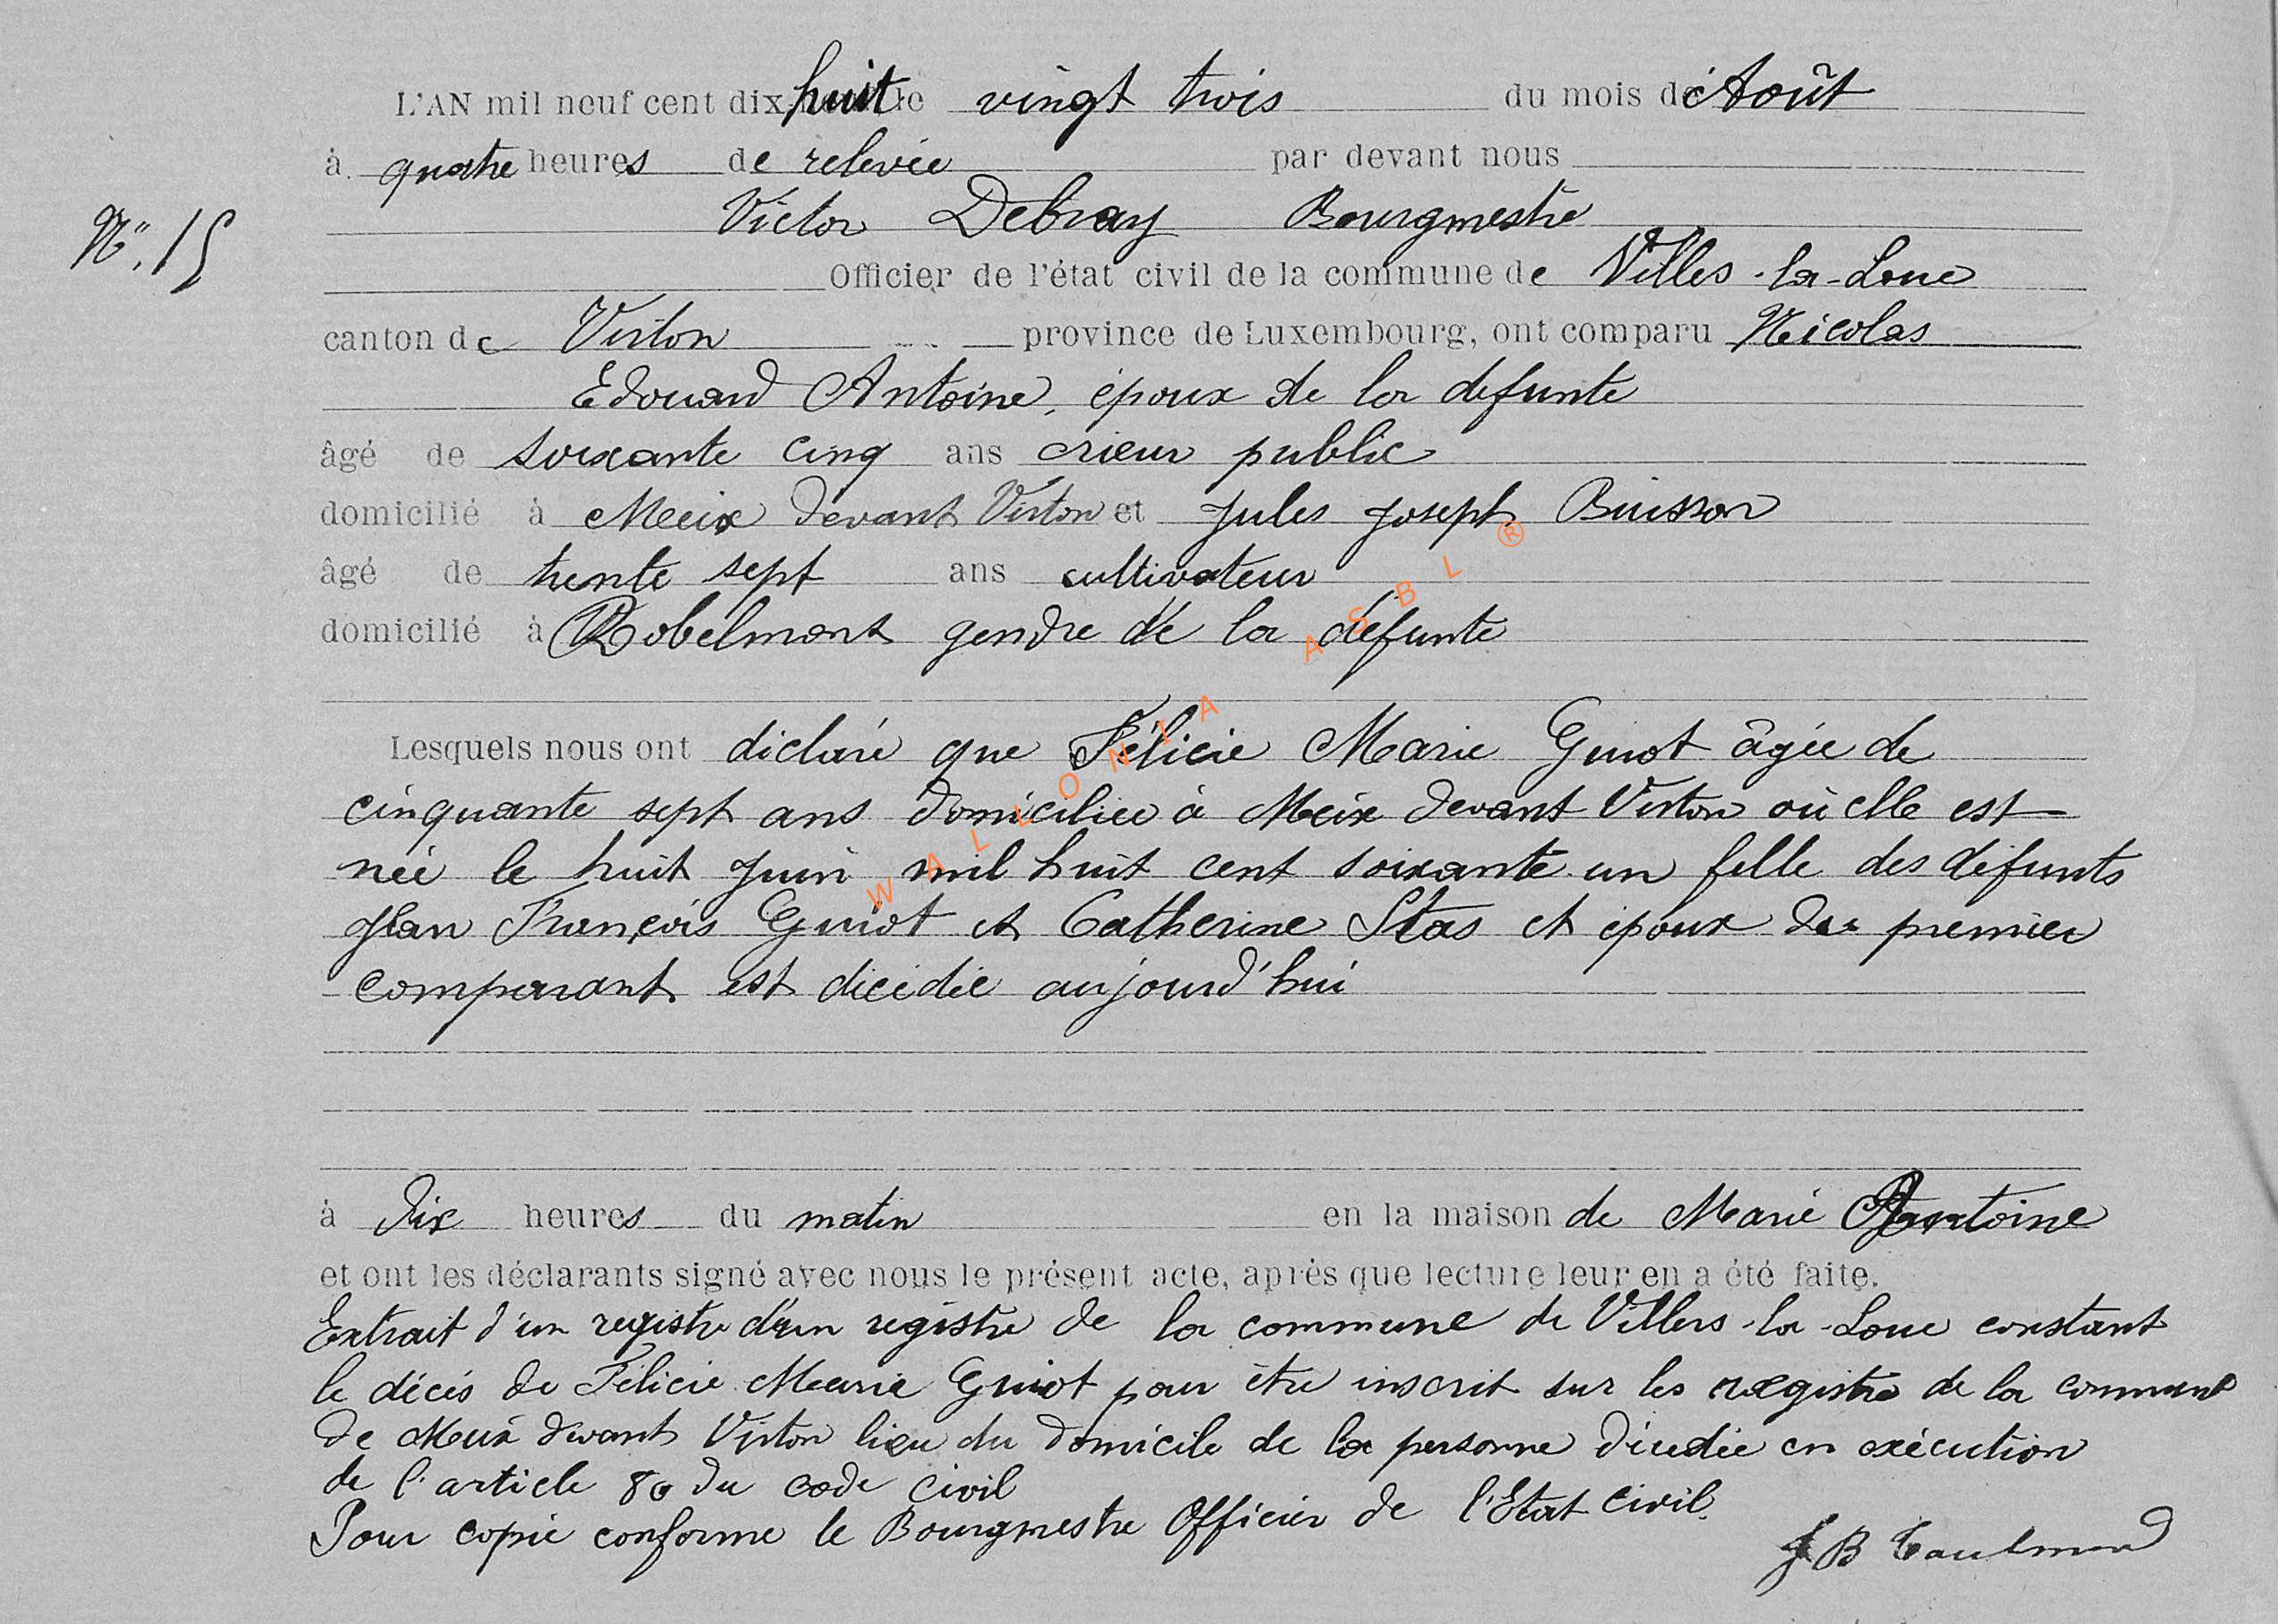 L'AN mil neuf cent dix huit le vingt trois du mois d'Août
à quatre heures de relevée par devant nous
Victor Debray Bourgmestre
N° 15
Officier de l'état civil de la commune de Villes-la-Loue
canton de Virton province de Luxembourg, ont comparu Nicolas
Edouard Antoine, époux de la defunte
âgé de soixante cinq ans crieur public
domicilié à Meix devant Virton et Jules Joseph Buisson
âgé de trente sept ans cultivateur
domicilié à Robelmont gendre de la defunte
Lesquels nous ont déclaré que Félicie Marie Guiot âgée de
cinquante sept ans domiciliée à Meix devant Virton où elle est
née le huit Juin mil huit cent soixante un fille des défunts
Jean François Guiot et Catherine Stas et époux du premier
comparant est décédée aujourd'hui
à dix heures du matin en la maison de Marie Antoine
et ont les déclarants signé avec nous le présent acte, après que lecture leur en a été faite.
Extrait d'un registre d'un registre de la commune de Villers-la-Loue constant
le décés de Félicie Marie Guiot pour être inscrit sur les registre de la commune
de Meix devant Virton lieu du domicile de la personne décédée en exécution
de l'article 80 du code civil
Pour copie conforme le Bourgmestre Officier de l'Etat Civil.
J B
WALLONIA ASBL ®